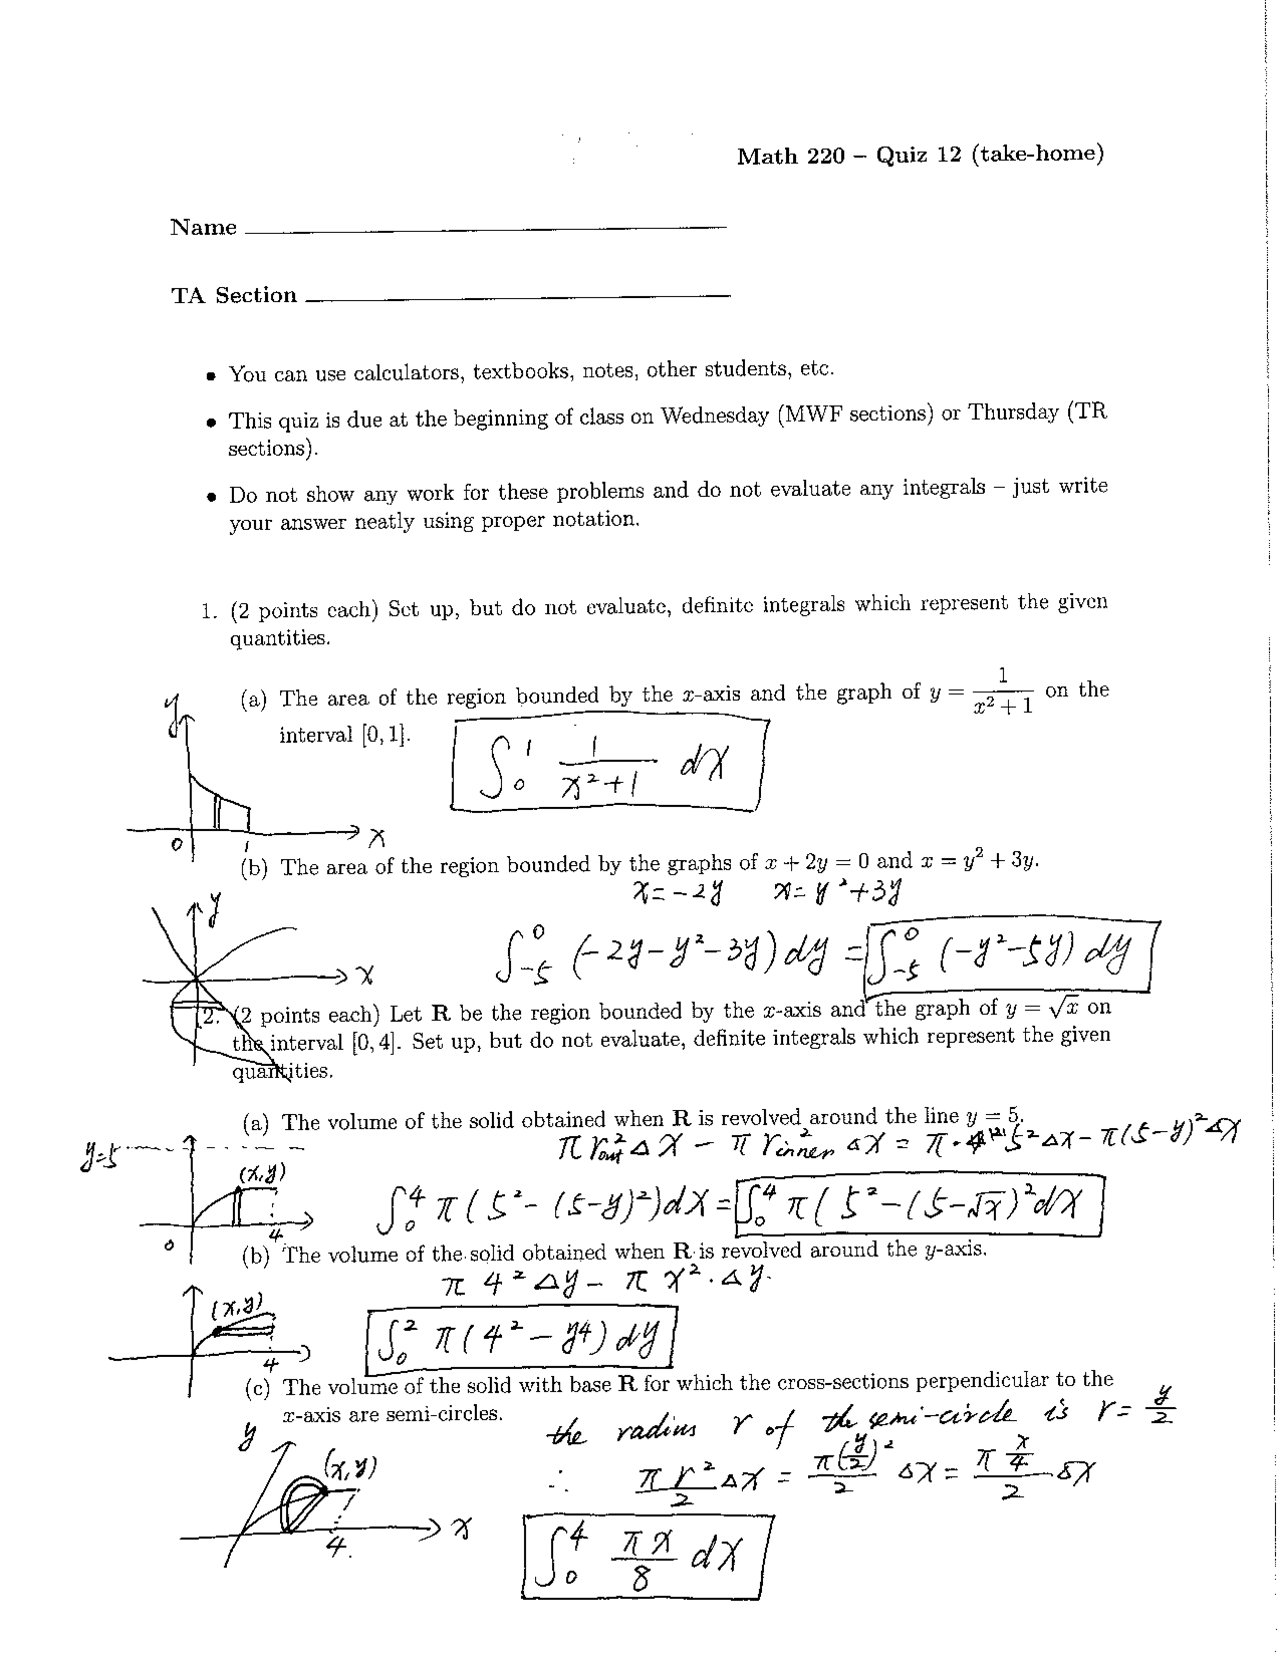 Math 220 – Quiz 12 (take-home)
Name
TA Section
• You can use calculators, textbooks, notes, other students, etc.
• This quiz is due at the beginning of class on Wednesday (MWF sections) or Thursday (TR
sections).
• Do not show any work for these problems and do not evaluate any integrals – just write
your answer neatly using proper notation.
1. (2 points each) Set up, but do not evaluate, definite integrals which represent the given
quantities.
(a) The area of the region bounded by the x-axis and the graph of y = 1/(x² + 1) on the
interval [0, 1].
∫₀¹ 1/(x²+1) dx
y
0 1 x
(b) The area of the region bounded by the graphs of x + 2y = 0 and x = y² + 3y.
x = -2y x = y² + 3y
y
x
∫₋₅⁰ (-2y - y² - 3y) dy = ∫₋₅⁰ (-y² - 5y) dy
2. (2 points each) Let R be the region bounded by the x-axis and the graph of y = √x on
the interval [0, 4]. Set up, but do not evaluate, definite integrals which represent the given
quantities.
(a) The volume of the solid obtained when R is revolved around the line y = 5.
y=5
π r²out Δx - π r²inner Δx = π · 5² Δx - π(5-y)² Δx
(x,y)
0 4
∫₀⁴ π(5² - (5-y)²) dx = ∫₀⁴ π(5² - (5-√x)² dx
(b) The volume of the solid obtained when R is revolved around the y-axis.
π 4² Δy - π x² · Δy.
(x,y)
4
∫₀² π(4² - y⁴) dy
(c) The volume of the solid with base R for which the cross-sections perpendicular to the
x-axis are semi-circles.
the radius r of the semi-circle is r = y/2
y
(x,y)
4.
x
∴ πr²/2 Δx = π(y/2)²/2 Δx = π x/4 /2 Δx
∫₀⁴ πx/8 dx